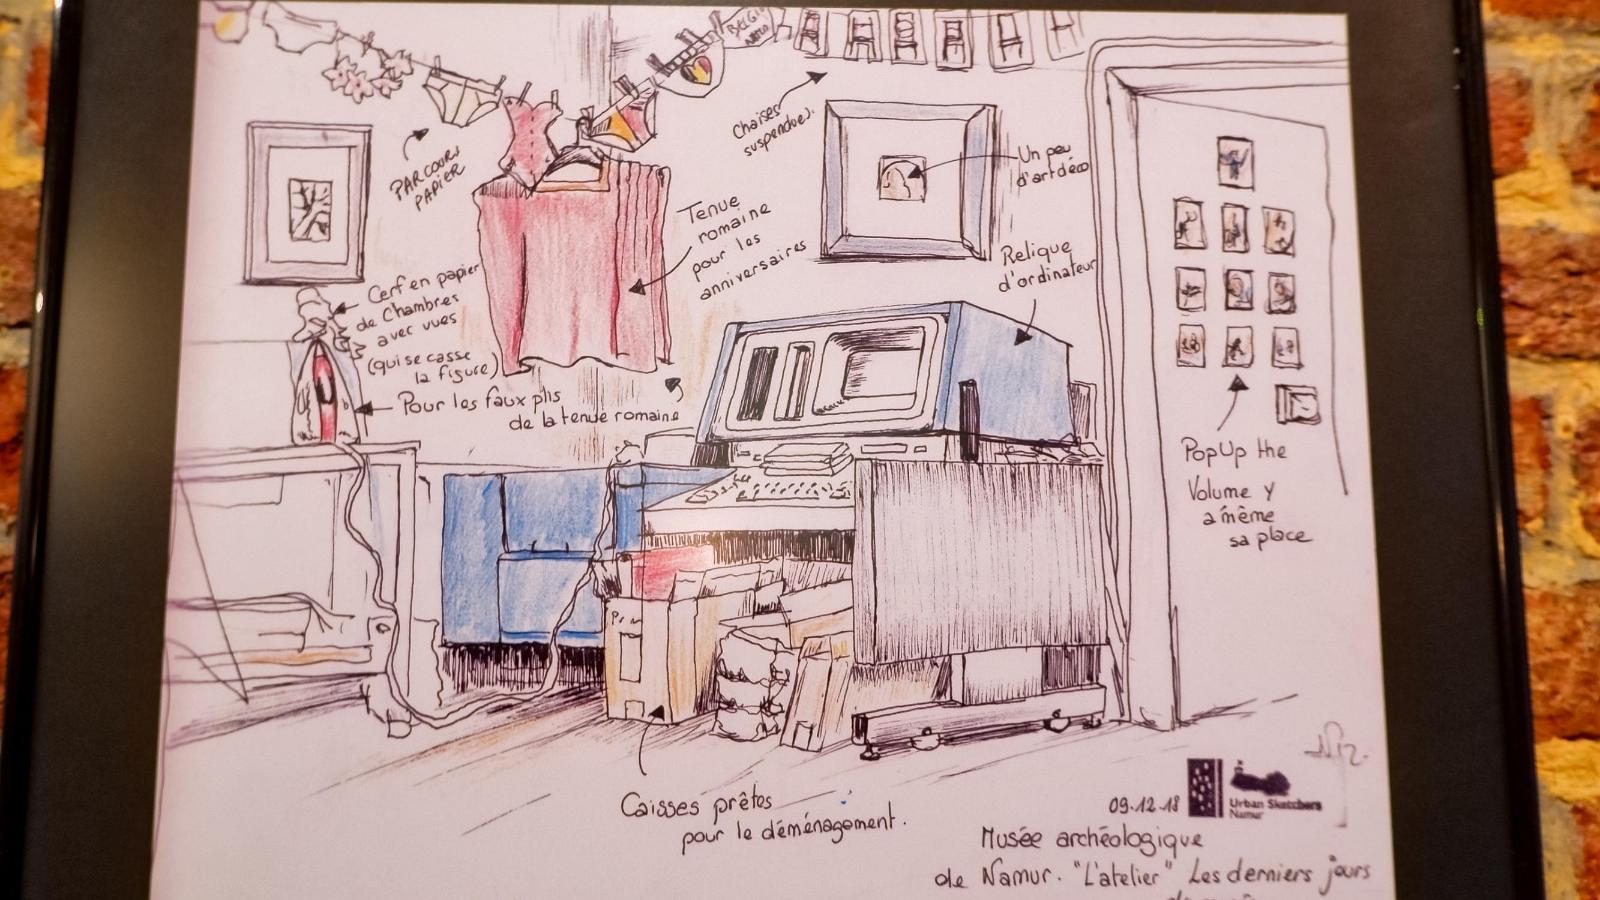 BELGIO
Chaises
suspendues.
PARCOURS
PAPIER
Un peu
d'art déco
Tenue
romaine
pour les
anniversaires
Relique
d'ordinateur
Cerf en papier
de Chambres
avec vues
(qui se casse
la figure)
Pour les faux plis
de la tenue romaine
PopUp the
Volume y
a même
sa place
Caisses prêtes
pour le déménagement.
09.12.18
Urban Sketchers
Namur
Musée archéologique
de Namur. "L'atelier" Les derniers jours